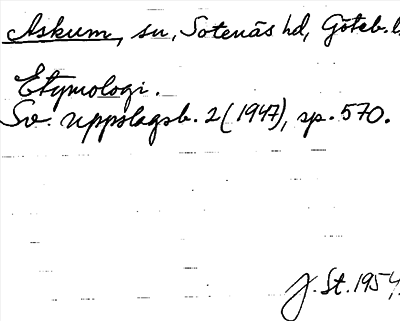 Askum, sn, Sotenäs hd, Göteb. l.
Etymologi.
Sv. uppslagsb. 2 (1947), sp. 570.
J. St. 1954.